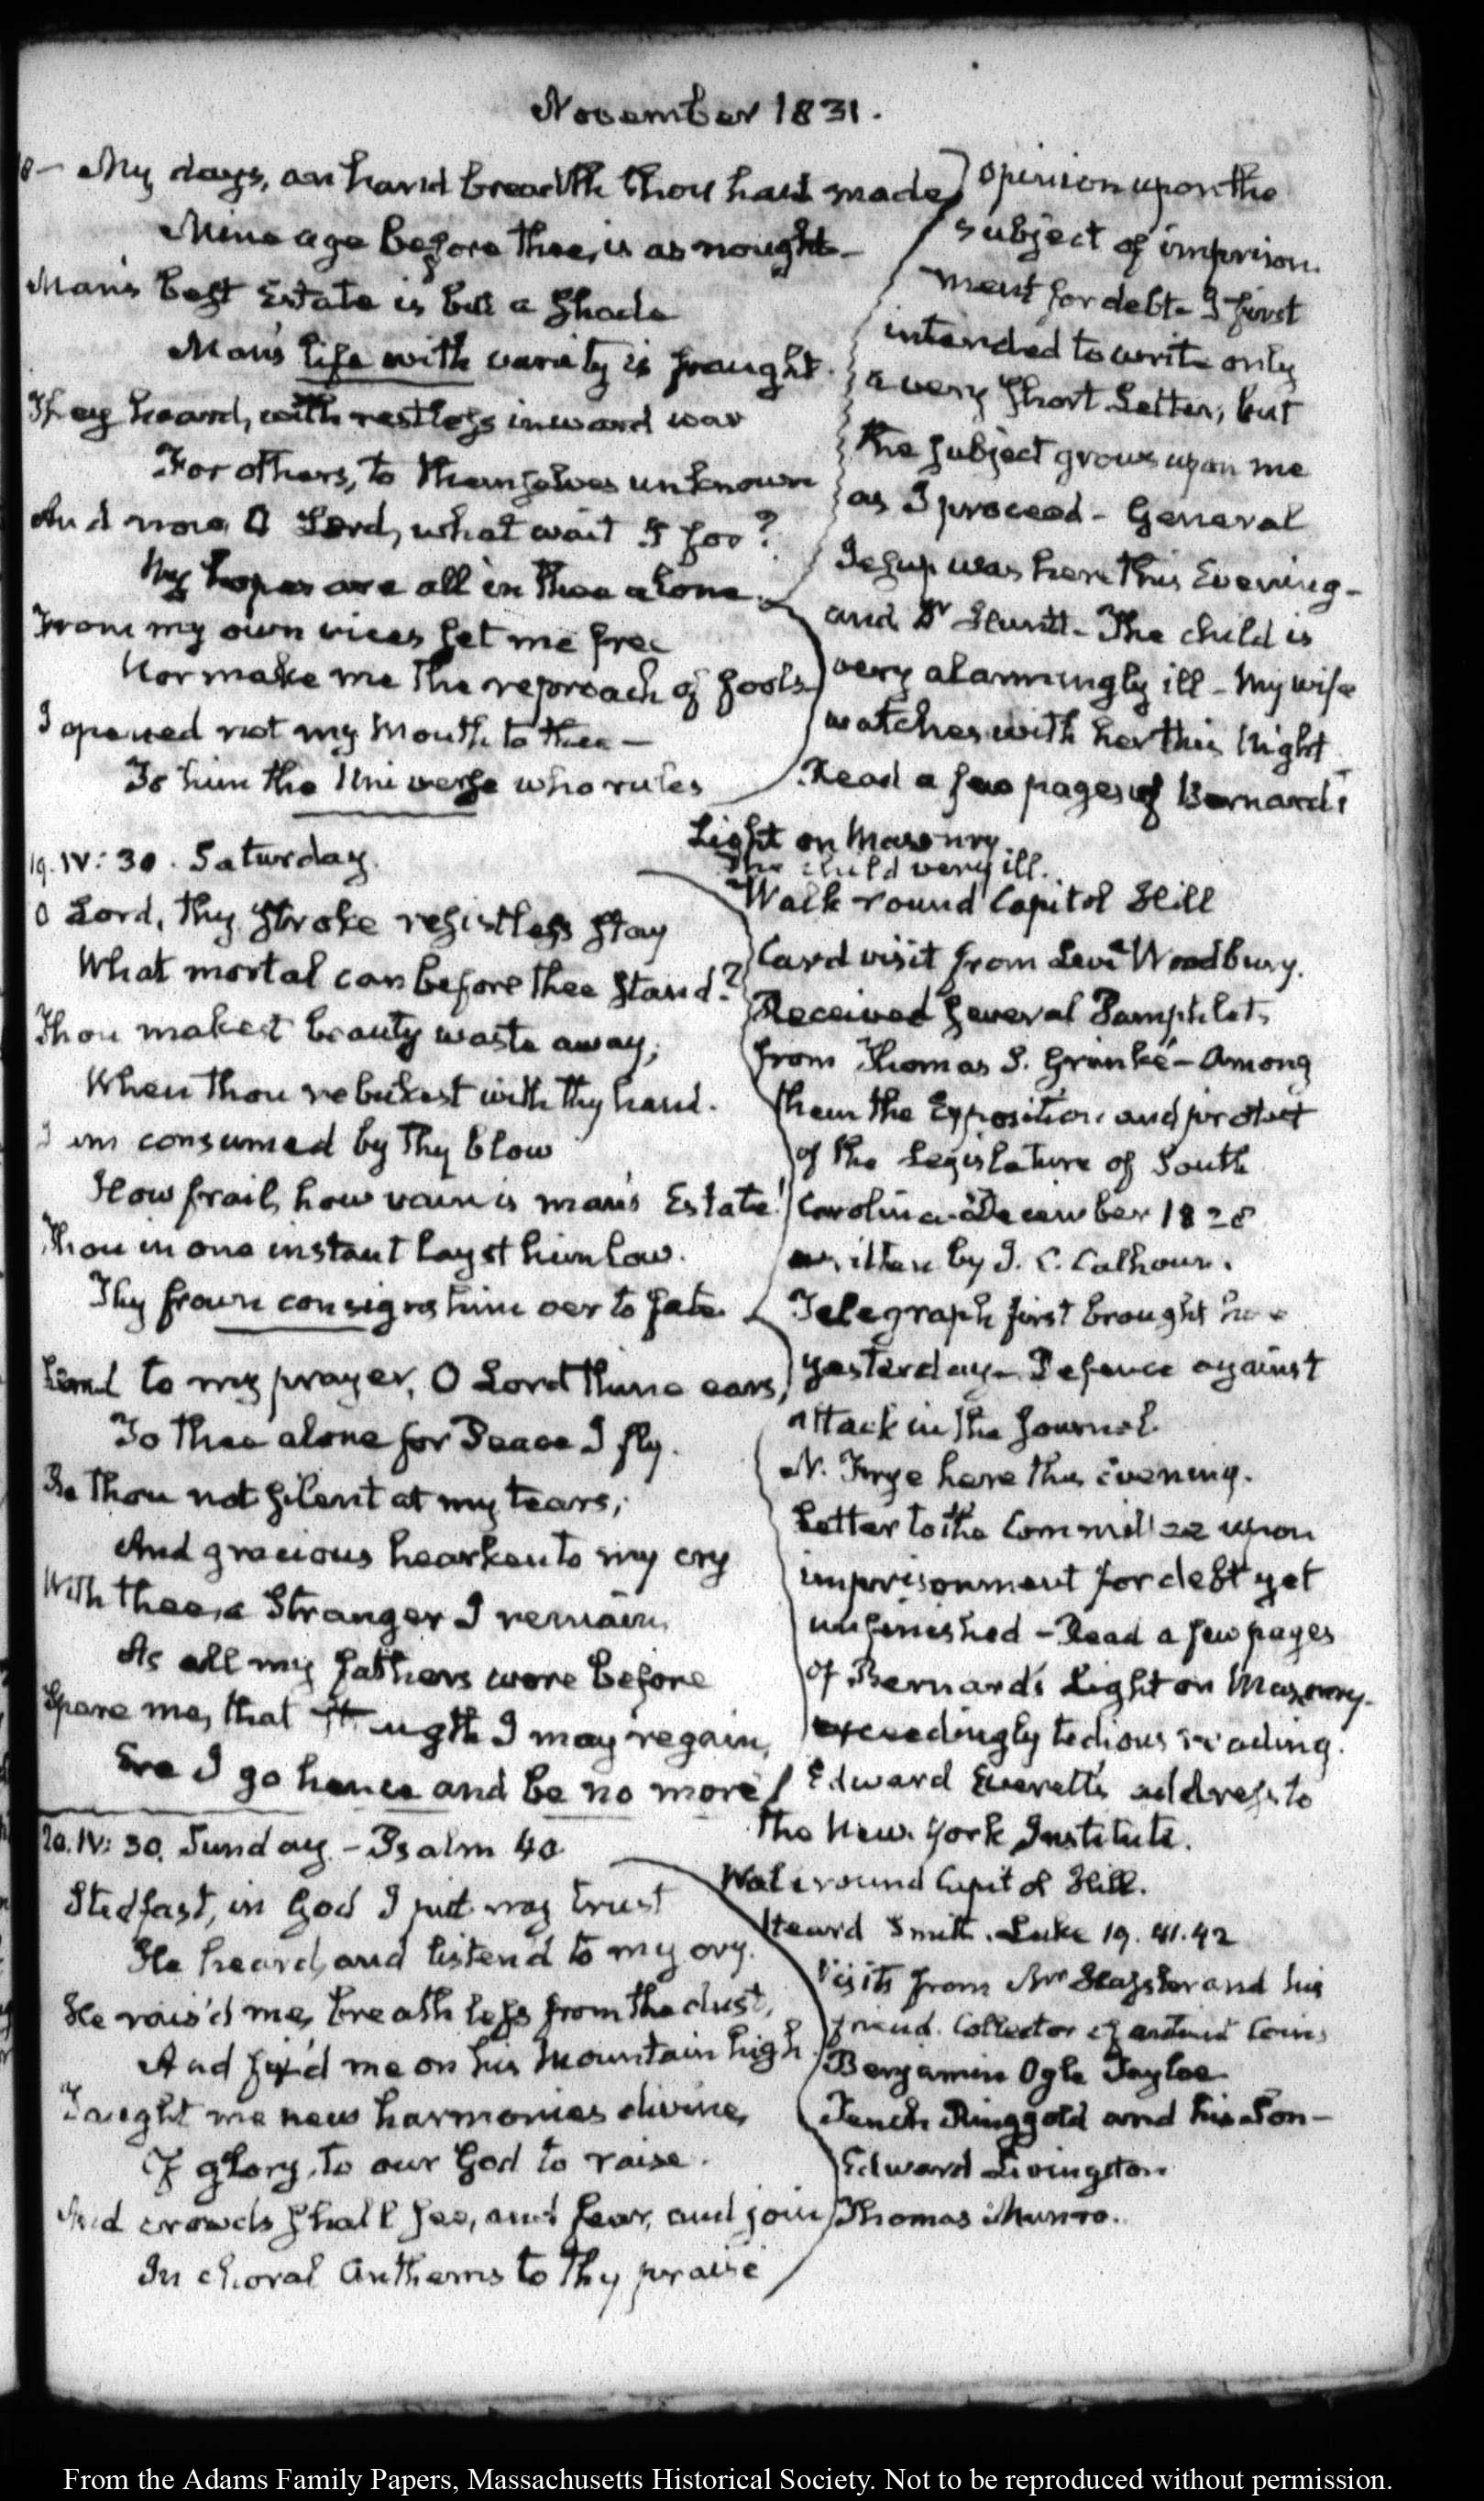 November 1831.
18 - My days, an hand breadth thou hast made
Mine age before thee, is as nought -
Man's best Estate is but a Shade
Man's life with vanity is fraught.
They hoard, with restless inward war
For others, to themselves unknown
And now O Lord, what wait I for?
My hopes are all in thee alone.
From my own vices set me free
Nor make me the reproach of fools
I opened not my mouth to thee -
To him the Universe who rules
opinion upon the
subject of imprison
ment for debt - I first
intended to write only
a very short Letter, but
the subject grows upon me
as I proceed - General
Jesup was here this Evening -
and Dr Huntt - The child is
very alarmingly ill - My wife
watches with her this Night
Read a few pages of Bernard's
Light on Masonry.
19. IV: 30. Saturday.
O Lord, thy stroke resistless stay
What mortal can before thee stand?
Thou makest beauty waste away,
When thou rebukest with thy hand.
I am consumed by thy blow
How frail, how vain is man's Estate!
Thou in one instant layst him low.
Thy frown consigns him oer to fate.
Lend to my prayer, O Lord thine ears,
To thee alone for Peace I fly.
Be thou not silent at my tears,
And gracious hearken to my cry
With thee, a Stranger I remain,
As all my fathers were before
Spare me, that strength I may regain,
Ere I go hence and be no more!
The child very ill.
Walk round Capitol Hill
Card visit from Levi Woodbury.
Received several Pamphlets
from Thomas S. Grimké - Among
them the Exposition and protest
of the Legislature of South
Carolina - December 1828
written by J. C. Calhoun.
Telegraph first brought here
yesterday - Defence against
attack in the Journal.
N. Frye here this evening.
Letter to the Committee upon
imprisonment for debt yet
unfinished - Read a few pages
of Bernard's Light on Masonry -
exceedingly tedious reading.
Edward Everett's address to
the New York Institute.
20. IV: 30. Sunday - Psalm 40
Stedfast, in God I put my trust
He heard, and listend to my cry.
He rais'd me, breathless from the dust,
And fix'd me on his Mountain high.
Taught me new harmonies divine,
Of glory, to our God to raise.
And crowds shall see, and fear, and join
In choral Anthems to thy praise
Walk round Capitol Hill.
Heard Smith. Luke 19. 41. 42
Visits from Mr and his
friend. Collector of antient Coins
Benjamin Ogle Tayloe
Tench Ringgold and his Son -
Edward Livingston
Thomas Munro.
From the Adams Family Papers, Massachusetts Historical Society. Not to be reproduced without permission.